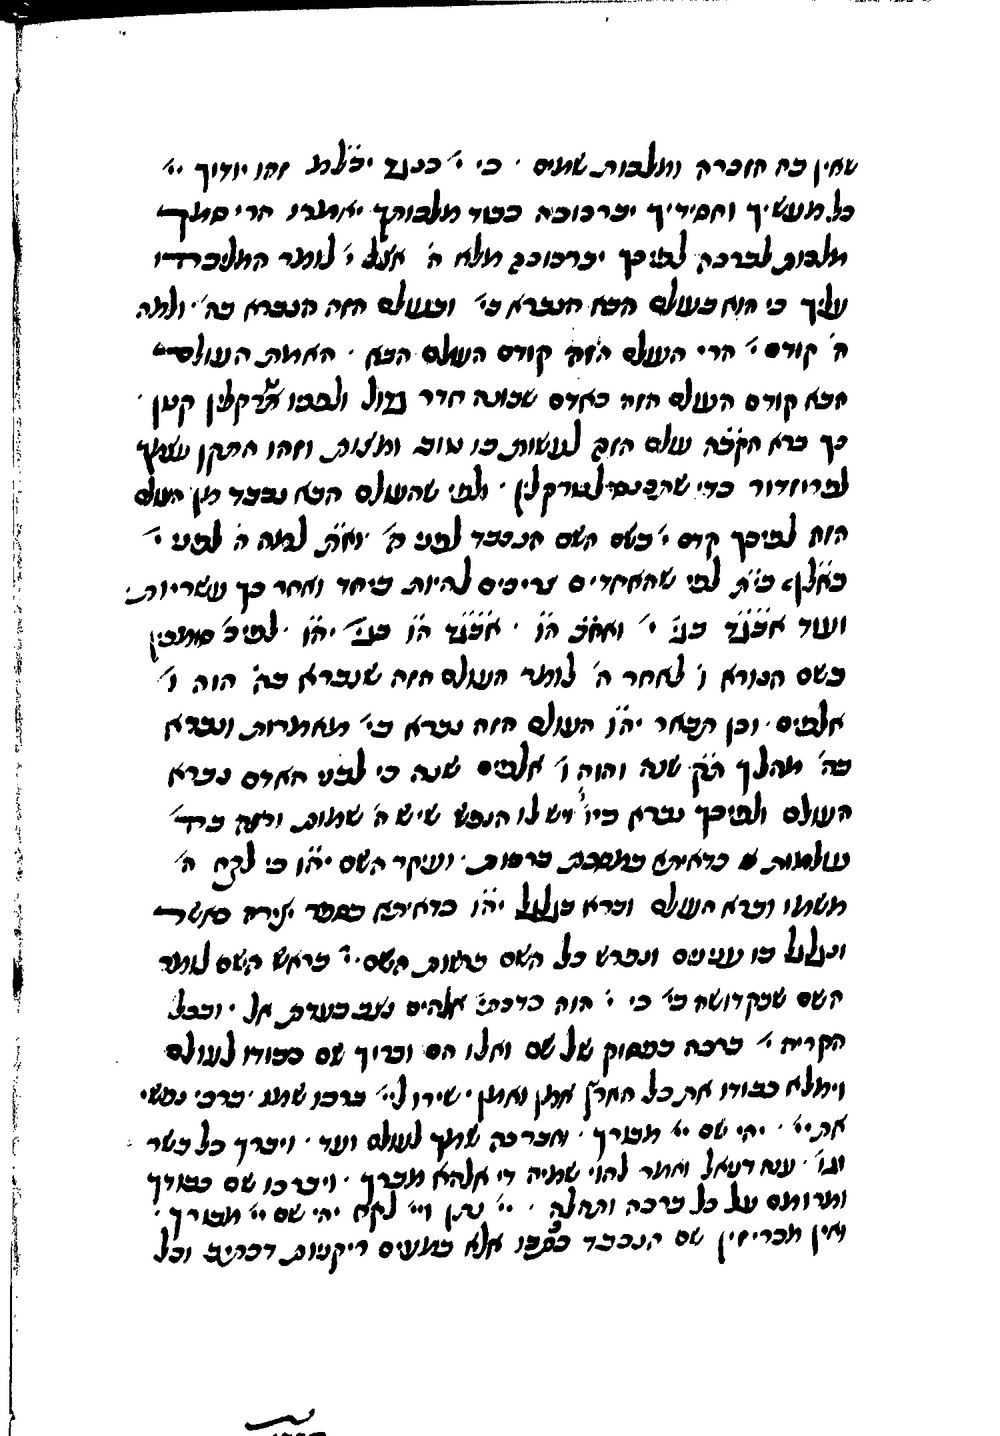 שאין בה הזכרה ומלכות שמים · כי י׳ כנגד יכ̈ל̈מ̈ זהו יודוך יי׳
כל מעשיך וחסידיך יברכוכה כבוד מלכותך יאמרו הרי סמך
מלכות לברכה לפיכך יברכוכה מלא ה׳ אצל י׳ לומר המלך
עליך כי הוא בעולם הבא הנברא בי׳ ובעולם הזה הנברא בה׳ · ולמה
ה׳ קודם י׳ הרי העולם הזה קודם העולם הבא · האמת העולם
הבא קודם העולם הזה כאדם שבונה חדר גדול ולפניו טרקלין קטן ·
כך ברא הק̈ב̈ה עולם הזה לעשות בו טוב ומצות וזהו התקן עצמך
לפרוזדור כדי שתכנס לטרקלין · ולפי שהעולם הבא נכבד מן העולם
הזה לפיכך קדם י׳ בשם השם הנכבד לפני ה׳ וא̈ת̈ למה ה׳ לפני י׳
בא̈ל̈ף בי̈ת לפי שהאחדים צריכים להיות ביחד ואחר כך עשריות ·
ועוד אב̈ג̈ד̈ בגי׳ י׳ ואח̈ב̈ ה̈ו̈ · אב̈ג̈ד̈ ה̈ו̈ בגי׳ יה̈ו̈ · לפיכ׳ סומכין
בשם הנורא ו׳ לאחר ה׳ לומר העולם הזה שנברא בה׳ הוה ו׳
אלפים · וכן תבאר יה̈ו̈ העולם הזה נברא בי׳ מאמרות ונברא
בה׳ מהלך ת̈ק̈ שנה והוה ו׳ אלפים שנה כי לפני האדם נברא
העולם ולפיכך נברא ביו׳ ויש לו הנפש שיש ה׳ שמות ורואה
עולמות כדאיתא במסכת ברכות · ועיקר השם יה̈ו̈ כי לקח ה׳
משמו וברא העולם וברא בגלגל יה̈ו̈ כדאיתא בספר יצירה
ונגלגל בו ענינים ונפרש כל השם ברשות השם · י׳ בראש השם לומר
השם שבקדושה בי׳ כי י׳ הוה כדכתי׳ אלהים נצב בעדת אל · ובכל
הקריה י׳ ברכה בפסוק של שם ואלו הם וברוך שם כבודו לעולם
וימלא כבודו את כל הארץ אמן ואמן · שירו ליי׳ ברכו שמו · ברכי נפשי
את יי׳ · יהי שם יי׳ מבורך · אברכה שמך לעולם ועד · ויברך כל בשר
וגו׳ · ענה דניאל ואמר להוי שמיה די אלהא מברך · ויברכו שם כבודך
ומרומם על כל ברכה ותהלה · יי׳ נתן ויי׳ לקח יהי שם יי׳ מבורך ·
ואין מכריזין שם הנכבד אלא כדכתיב וכל